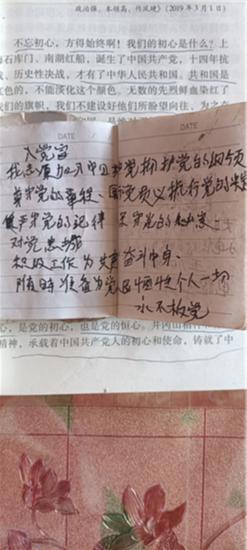 政治强、本领高、作风硬》(2019年3月1日)
不忘初心，方得始终啊！我们的初心是什么？上
石库门，南湖红船，诞生了中国共产党，十四年抗
、历史性决战，才有了中华人民共和国。共和国是
色的，不能淡化这个颜色。无数的先烈鲜血染红了
们的旗帜，我们不建设好他们所盼望向往、为之
DATE DATE
入党宣
我志愿加入中国 党拥护党的纲领
守党的章程、党员义执行党的决
严守党的纪律 守党的
对党忠诚
积极工作为共 奋斗终身、
随时准备为党 牺牲个人一切
永不叛党
心，是党的初心，也是党的恒心。井冈山
精神，承载着中国共产党人的初心和使命，铸就了中